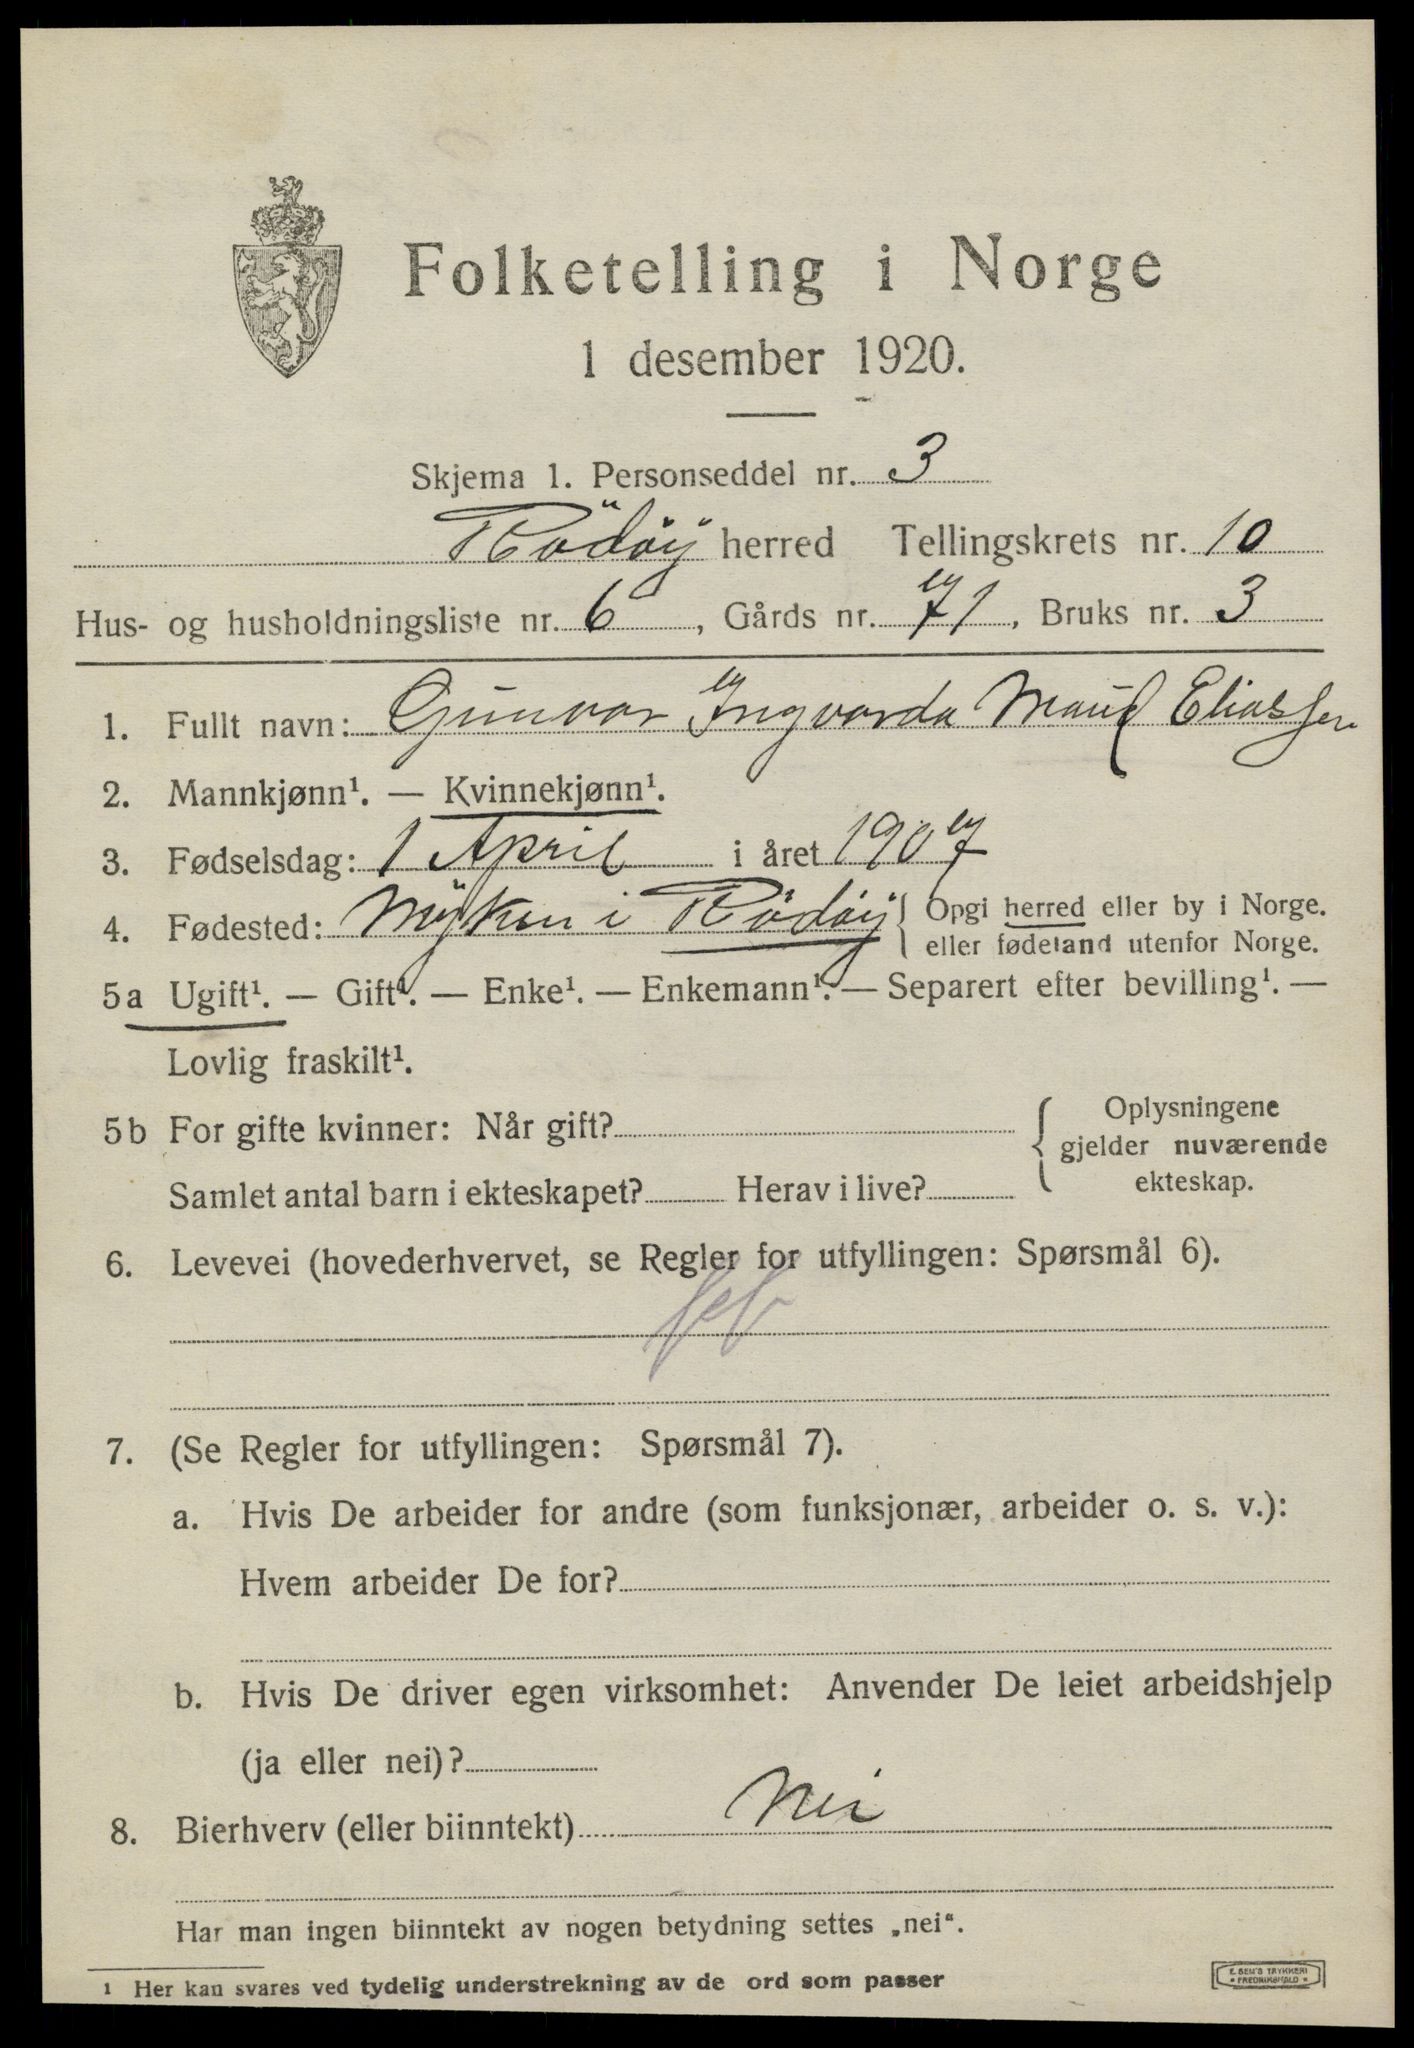 Folketelling i Norge
1 desember 1920.
Skjema 1. Personseddel nr. 3
Rödöy herred Tellingskrets nr. 10
Hus- og husholdningsliste nr. 6, Gårds nr. 71, Bruks nr. 3
1. Fullt navn: Gunvor Ingvarda Maud Eliassen
2. Mannkjønn¹. — Kvinnekjønn¹.
3. Fødselsdag: 1 April i året 1907
4. Fødested: Myken i Rödöy { Opgi herred eller by i Norge.
eller fødeland utenfor Norge.
5a Ugift¹. — Gift¹. — Enke¹. — Enkemann¹. — Separert efter bevilling¹. —
Lovlig fraskilt¹.
5b For gifte kvinner: Når gift?
Samlet antal barn i ekteskapet? Herav i live?
{ Oplysningene
gjelder nuværende
ekteskap.
6. Levevei (hovederhvervet, se Regler for utfyllingen: Spørsmål 6).
7. (Se Regler for utfyllingen: Spørsmål 7).
a. Hvis De arbeider for andre (som funksjonær, arbeider o. s. v.):
Hvem arbeider De for?
b. Hvis De driver egen virksomhet: Anvender De leiet arbeidshjelp
(ja eller nei)?
8. Bierhverv (eller biinntekt) Nei
Har man ingen biinntekt av nogen betydning settes „nei“.
1 Her kan svares ved tydelig understrekning av de ord som passer
E. SEM'S TRYKKERI
• FREDRIKSHALD •